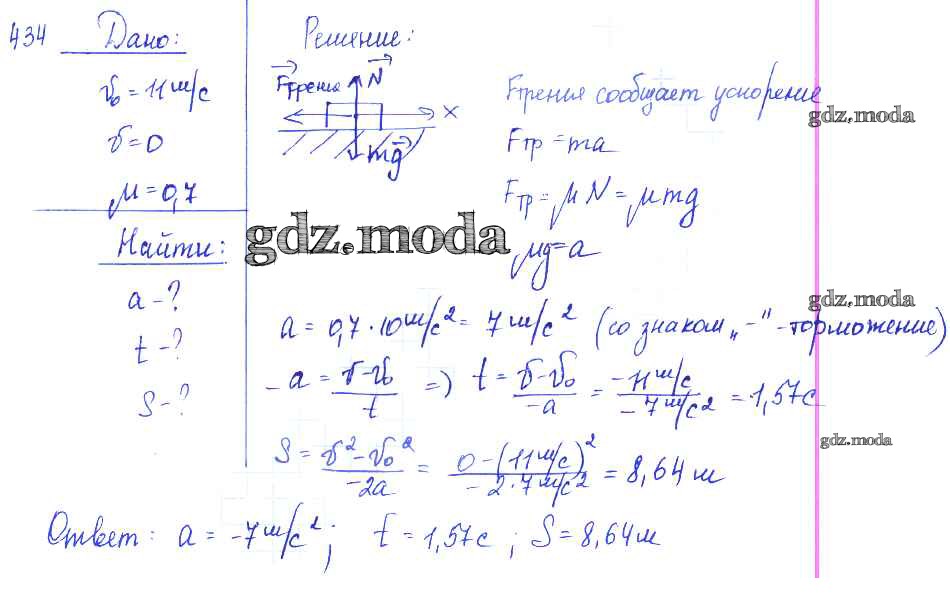 434 Дано:
v₀ = 11 м/с
v = 0
μ = 0,7
Найти:
a - ?
t - ?
S - ?
Решение:
Fтрения N
X
mg
Fтрения сообщает ускорение
gdz.moda
Fтр = ma
Fтр = μN = μmg
gdz.moda
μg = a
gdz.moda
a = 0,7 · 10 м/с² = 7 м/с² (со знаком „-" - торможение)
-a = (v - v₀)/t => t = (v - v₀)/-a = (-11 м/с)/(-7 м/с²) = 1,57 с
gdz.moda
S = (v² - v₀²)/-2a = (0 - (11 м/с)²)/(-2·7 м/с²) = 8,64 м
Ответ: a = -7 м/с²; t = 1,57 с; S = 8,64 м